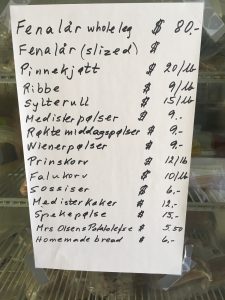 Fenalår whole leg $ 80.-
Fenalår (slized) $
Pinnekjøtt $ 20/lb
Ribbe $ 9/lb
Sylterull $ 15/lb
Medisterpølser $ 9..
Røkte middagspølser $ 9.-
Wienerpølser $ 9.-
Prinskorv $ 12/lb
Falukorv $ 10/lb
Sossiser $ 6,-
Medisterkaker $ 12,-
Spekepølse $ 15,-
Mrs Olsens Potetlefse $ 5.50
Homemade bread $ 6,-